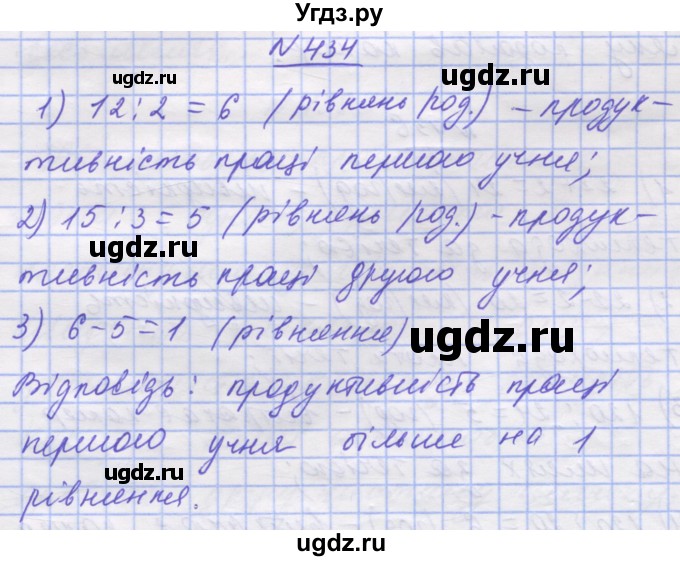 Угдз.ру
N 434
1) 12 : 2 = 6 (рівнянь/год.) - продук-
тивність праці першого учня;
2) 15 : 3 = 5 (рівнянь/год.) - продук-
тивність праці другого учня;
3) 6 - 5 = 1 (рівняння)
Відповідь: продуктивність праці
першого учня більше на 1
рівняння.
ugdz.ru
ugdz.ru
ugdz.ru
ugdz.ru
ugdz.ru
ugdz.ru
ugdz.ru
ugdz.ru